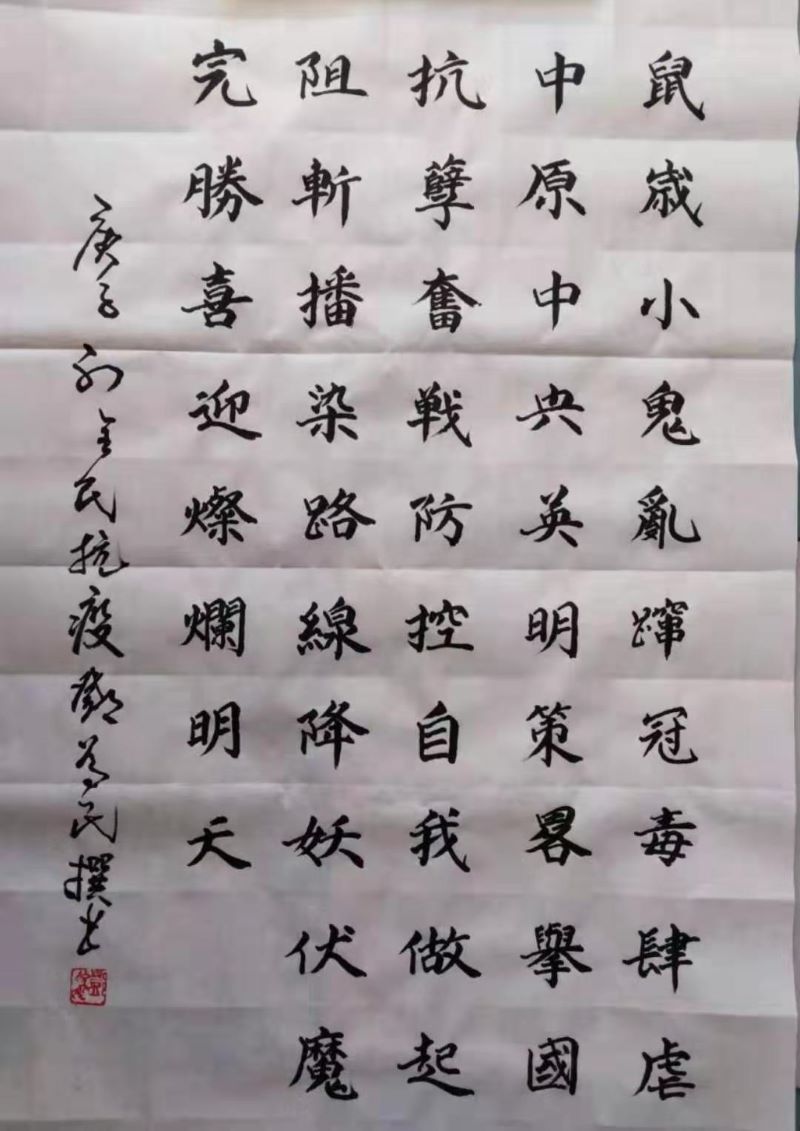 鼠歲小鬼亂蹿冠毒肆虐
中原中央英明策畧舉國
抗孽奮戰防控自我做起
阻斬播染路線降妖伏魔
完勝喜迎燦爛明天
庚子初全民抗疫鄭為民撰書